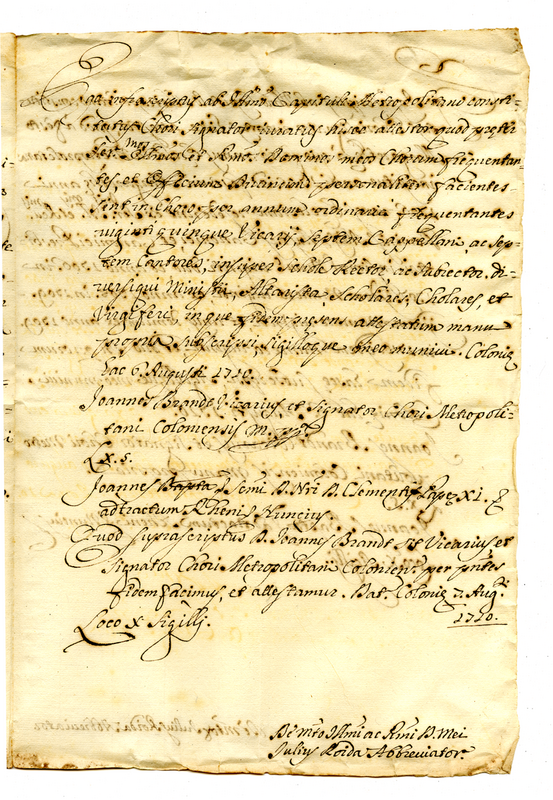 Ego infrascriptus ab Illmo Capitulo Metropolitano consti-
tutus Chori signator iuratus hisce attestor quod præter
et Rmos Dominos meos Chorum frequentan-
tes, et Officium Divinum personaliter facientes
sint in Choro per annum ordinarie frequentantes
viginti quinque Vicarij, septem Cappellani, ac sep-
tem Cantores, insuper Scholæ Rector, ac Subrector, di-
versique Ministri, Altaristæ, Scholares, Chorales, et
Virgiferi, in quorum præsens attestatum manu
propria subscripsi, sigilloque meo munivi. Coloniæ
hac 6 Augusti 1710.
Joannes Brandt Vicarius et Signator Chori Metropoli-
tani Coloniensis
L x S.
Joannes Bapta D. Nri D. Clementis Papæ XI. &
ad tractum Rheni Nuncius
Quod suprascriptus D. Joannes Brandt sit Vicarius, et
Signator Chori Metropolitani Colonien. per pntes
fidem facimus, et attestamur. Dat. Coloniæ 7 Augti
1710.
Loco x Sigilli.
De mto Illmi ac Rmi D. Mei
Julius Roida Abbreviator